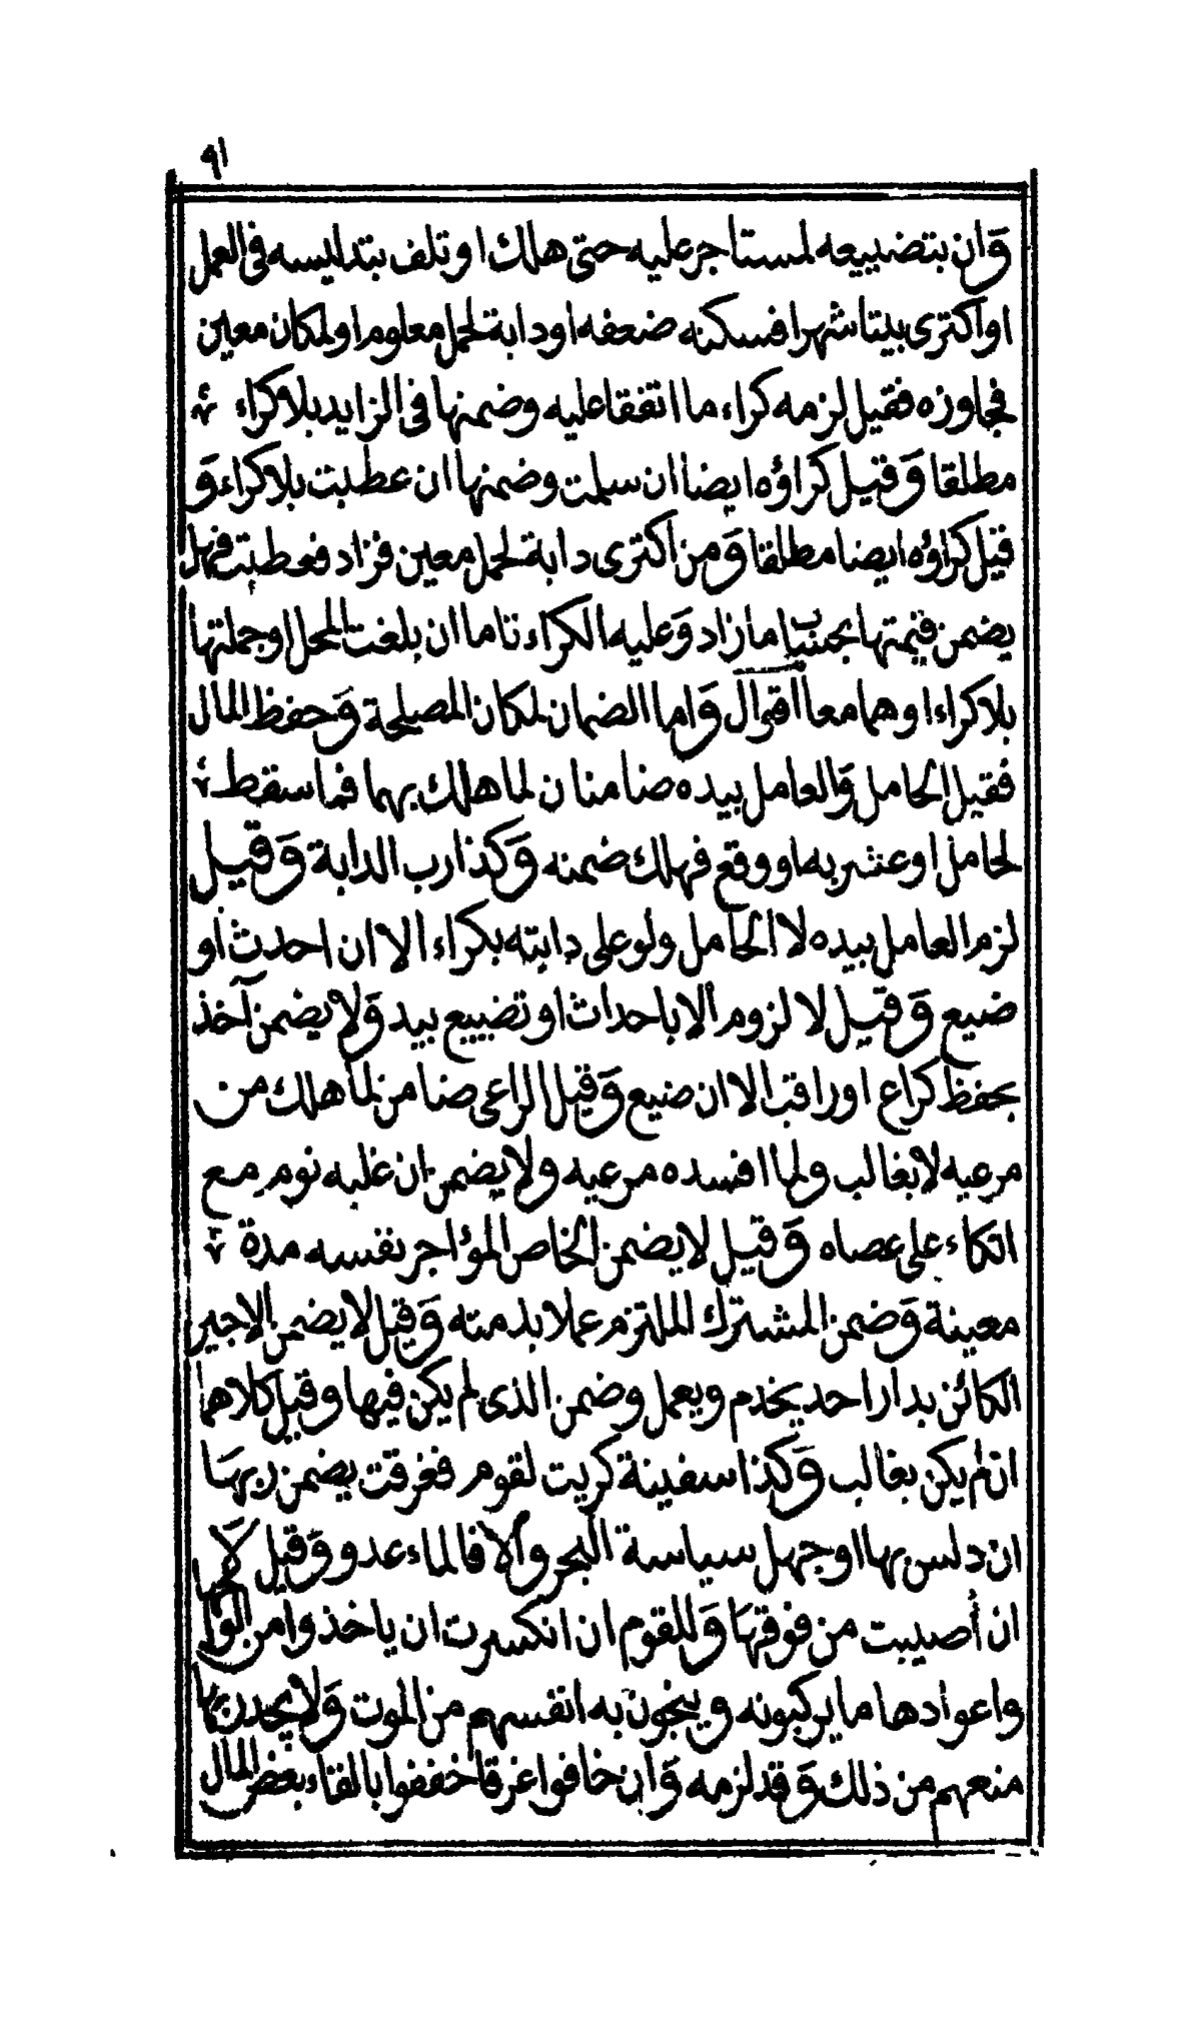 ٩١
وان بتضييعه لمستاجر عليه حتى هلك او تلف بتدليسه فى العمل
او اكترى بيتا شهرا فسكنه ضعفه او دابة لحمل معلوم او لمكان معين
فجاوزه فقيل لزمه كراء ما اتفقا عليه وضمنها فى الزايد بلا كراء
مطلقا وقيل كراؤه ايضا ان سلمت وضمنها ان عطبت بلا كراء و
قيل كراؤه ايضا مطلقا ومن اكترى دابة لحمل معين فزاد فعطبت فهل
يضمن قيمتها بحساب ما زاد وعليه الكراء تاما ان بلغت المحل او جملتها
بلا كراء او هما معا اقوال واما الضمان لمكان المصلحة وحفظ المال
فقيل الحامل والعامل بيده ضامنان لما هلك بهما فما سقط
لحامل او عثر به او وقع فهلك ضمنه وكذا رب الدابة وقيل
لزم العامل بيده لا الحامل ولو على دابته بكراء الا ان احدث او
ضيع وقيل لا لزوم الا باحداث او تضييع بيد ولا يضمن آخذ
بحفظ كراع او راقب الا ان ضيع وقيل الراعى ضامن لما هلك من
مرعيه لا بغالب ولما افسده مرعيه ولا يضمن ان غلبه نوم مع
اتكاء على عصاه وقيل لا يضمن الخاص المؤاجر نفسه مدة
معينة وضمن المشترك الملتزم عملا بذمته وقيل لا يضمن الاجير
الكائن بدار احد يخدم ويعمل وضمن الذى لم يكن فيها وقيل كلاهما
ان لم يكن بغالب وكذا سفينة كريت لقوم فغرقت يضمن ربها
ان دلس بها او جهل سياسة البحر والا فالماء عدو وقيل
ان أصيبت من فوقها وللقوم ان انكسرت ان ياخذوا من
واعوادها ما يركبونه وينجون به انفسهم من الموت ولا يجد ربها
منعهم من ذلك وقد لزمه وان خافوا غرقا خففوا بالقاء بعض المال